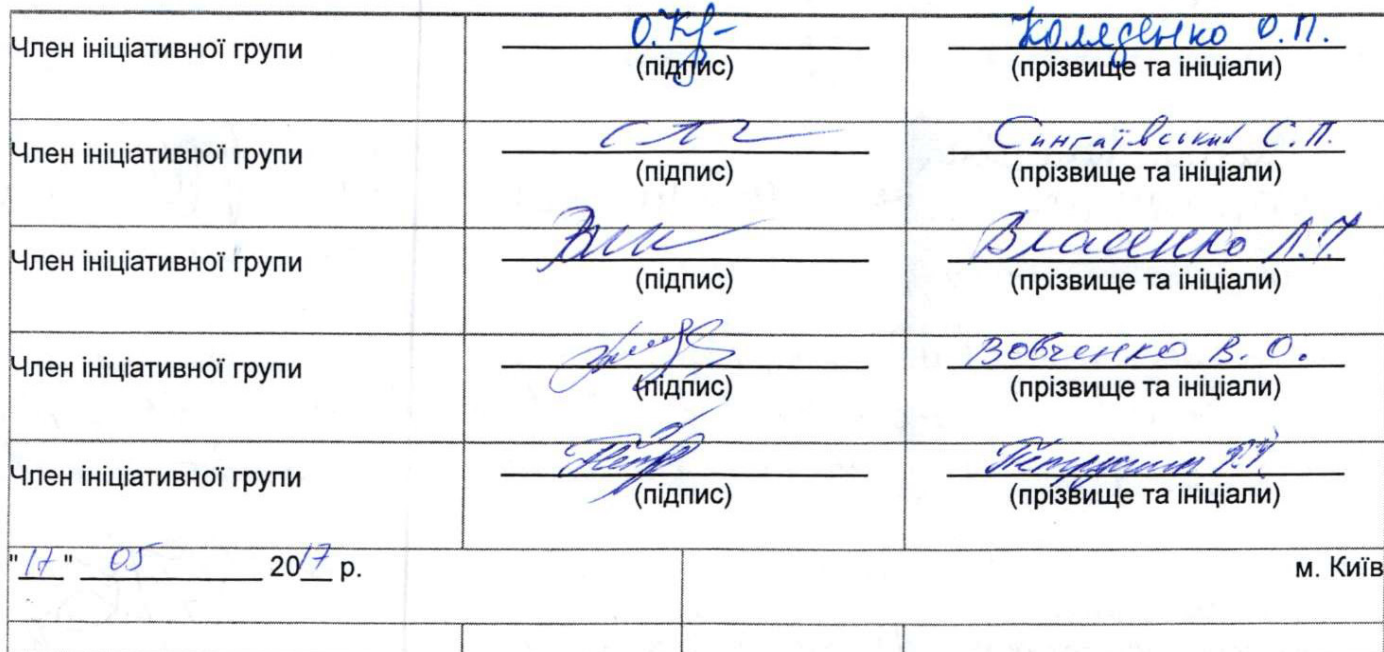 Член ініціативної групи (підпис) Коляденко О.П. (прізвище та ініціали)
Член ініціативної групи (підпис) Сингаївський С.П. (прізвище та ініціали)
Член ініціативної групи (підпис) Власенко Л.П. (прізвище та ініціали)
Член ініціативної групи (підпис) Вовченко В.О. (прізвище та ініціали)
Член ініціативної групи (підпис) (прізвище та ініціали)
"17" 05 2017 р. м. Київ